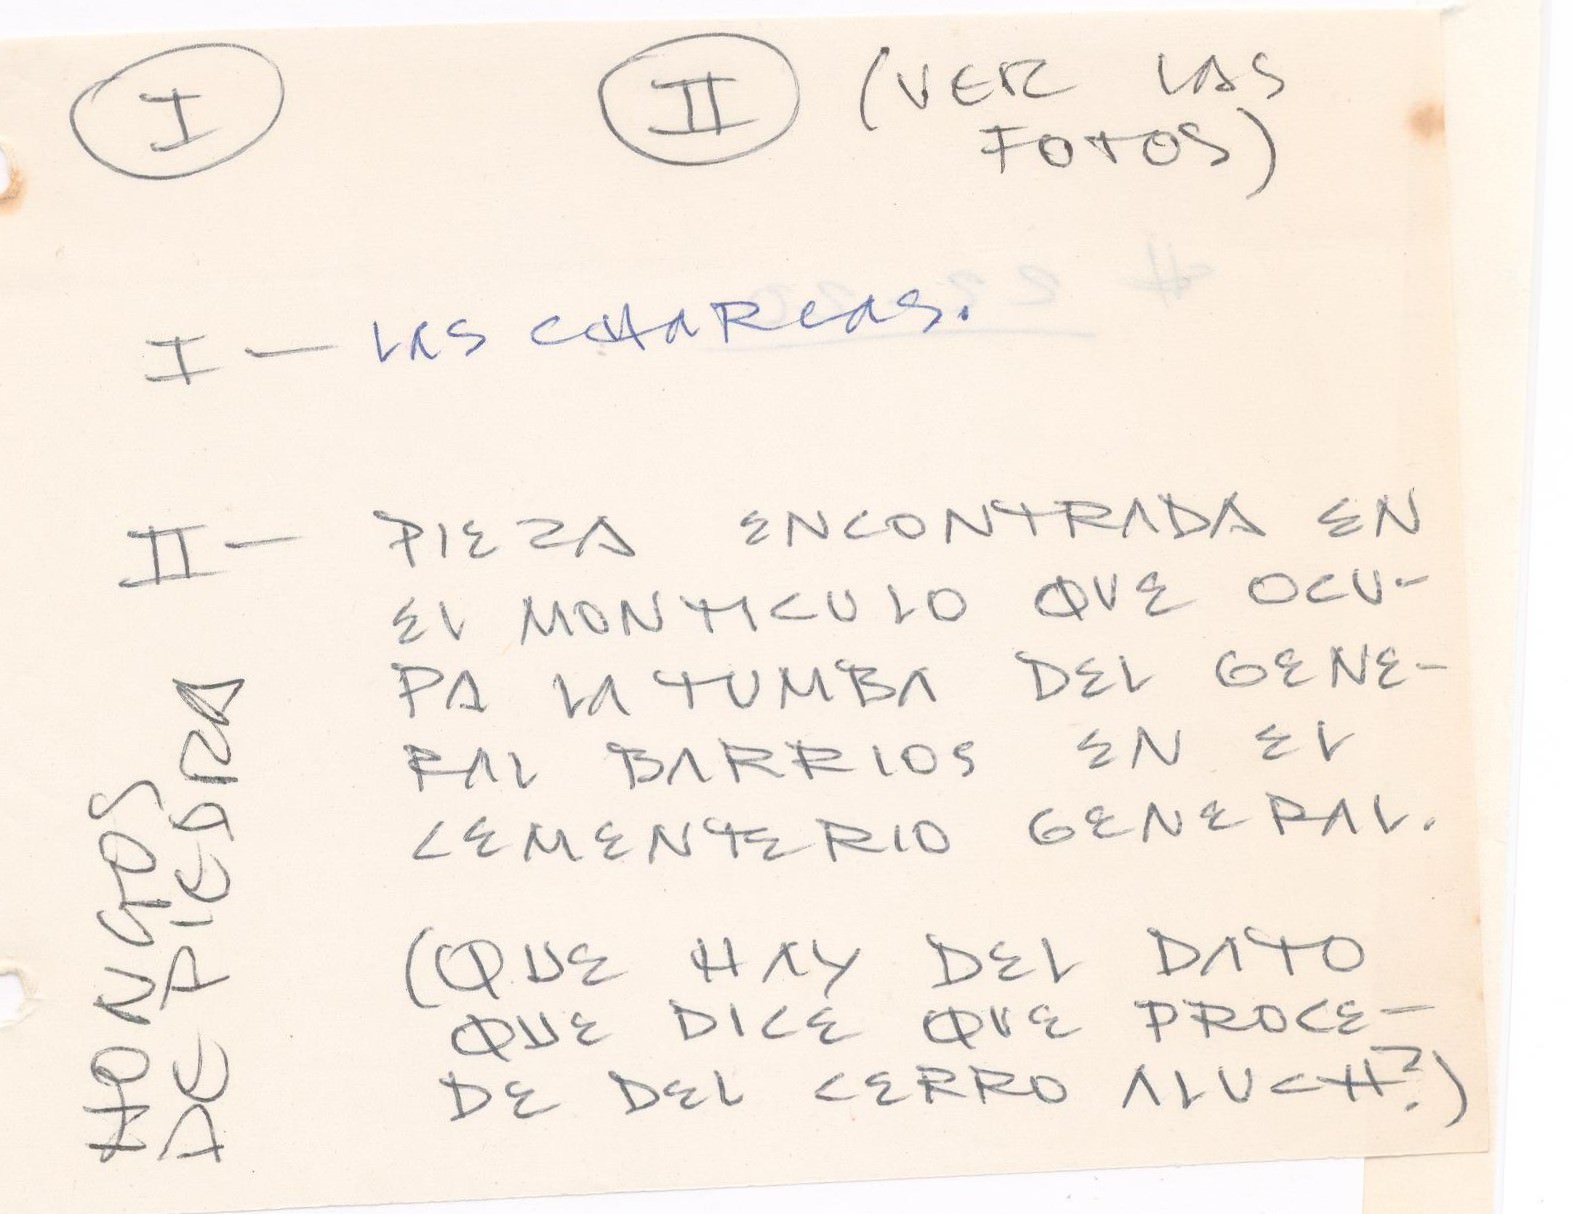 I II (VER LAS
FOTOS)
I — LAS CHARCAS.
II — PIEZA ENCONTRADA EN
EL MONTICULO QUE OCU-
PA LA TUMBA DEL GENE-
RAL BARRIOS EN EL
CEMENTERIO GENERAL.
(QUE HAY DEL DATO
QUE DICE QUE PROCE-
DE DEL CERRO ALUCH?)
HONGOS
DE PIEDRA